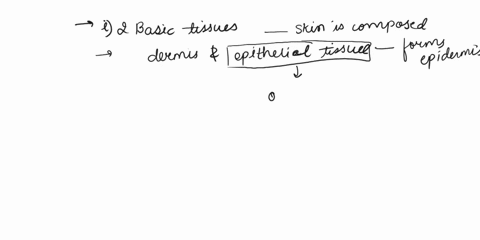 → i) 2 Basic tissues — skin is composed
→ dermis & epithelial tissue — forms epidermis
↓